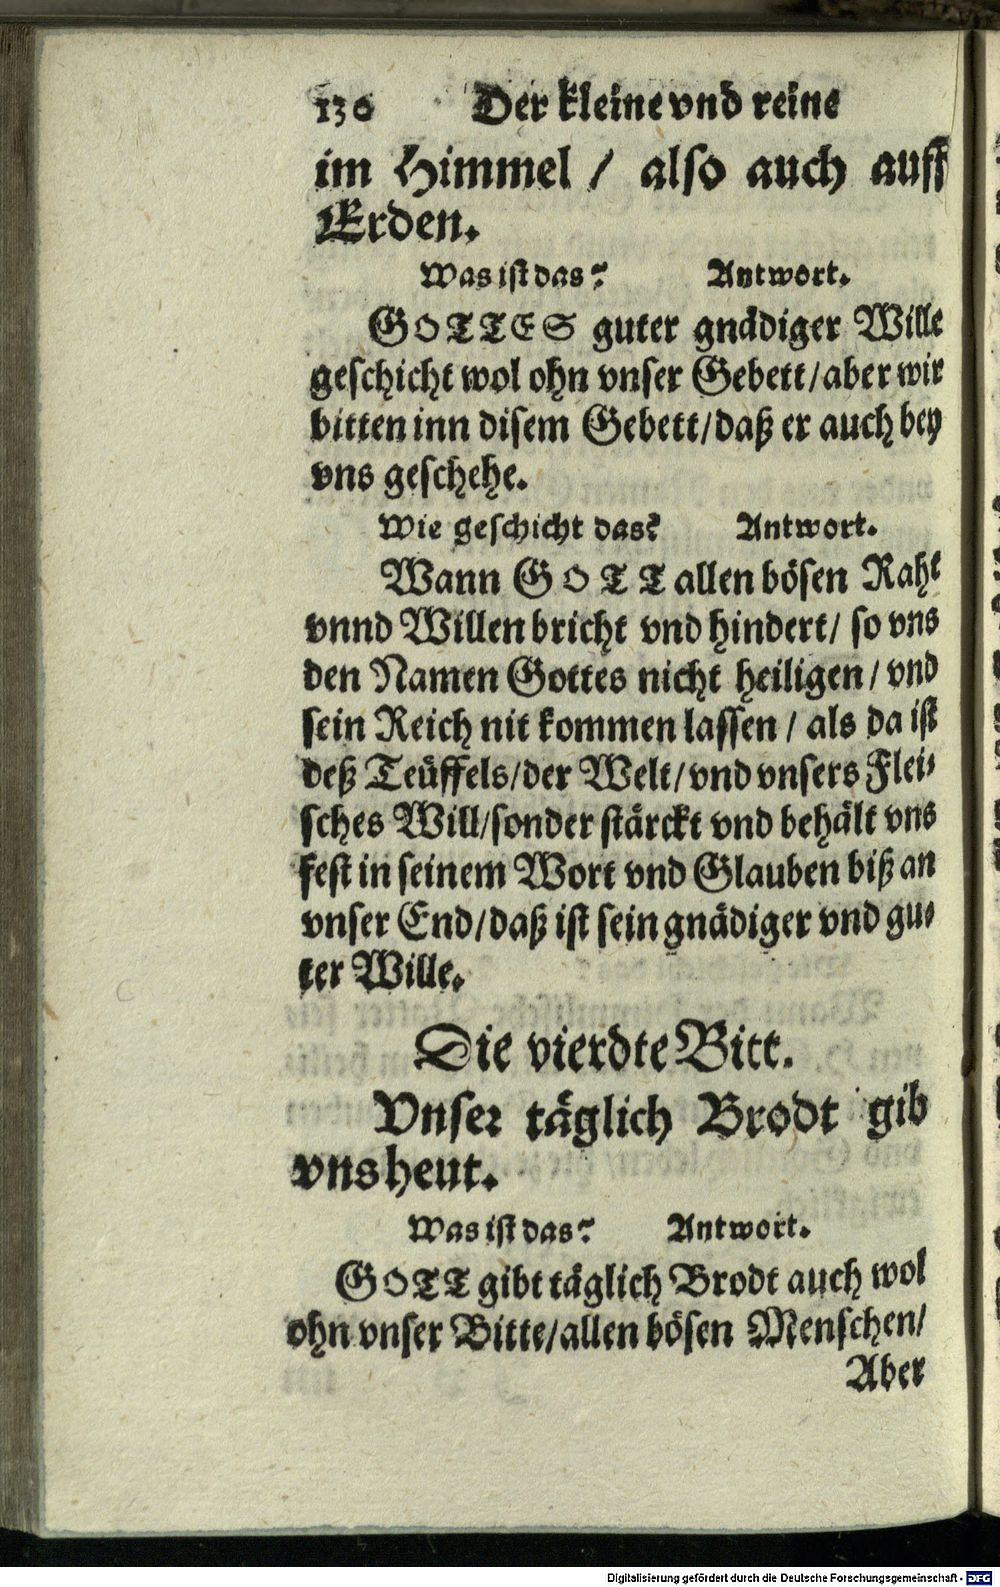 130 Der kleine vnd reine
im Himmel / also auch auff
Erden.
Was ist das? Antwort.
GOTTES guter gnädiger Wille
geschicht wol ohn vnser Gebett/aber wir
bitten inn disem Gebett/daß er auch bey
vns geschehe.
Wie geschicht das? Antwort.
Wann GOTT allen bösen Raht
vnnd Willen bricht vnd hindert/ so vns
den Namen Gottes nicht heiligen / vnd
sein Reich nit kommen lassen / als da ist
deß Teüffels/der Welt/vnd vnsers Flei-
sches Will/sonder stärckt vnd behält vns
fest in seinem Wort vnd Glauben biß an
vnser End/daß ist sein gnädiger vnd gu-
ter Wille.
Die vierdte Bitt.
Vnser täglich Brodt gib
vns heut.
Was ist das? Antwort.
GOTT gibt täglich Brodt auch wol
ohn vnser Bitte/allen bösen Menschen/
Aber
Digitalisierung gefördert durch die Deutsche Forschungsgemeinschaft - DFG